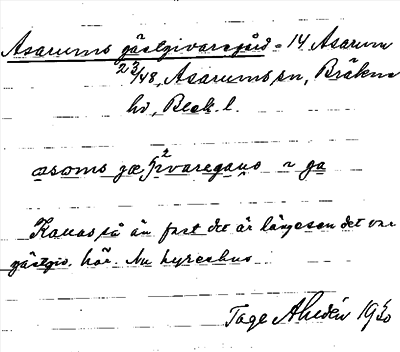 Asarums gästgivaregård = 14 Asarum
23/48, Asarums sn, Bräkne
hd, Blek. l.
asoms
Kallas så än fast det är längesen det var
gästgiv. här. Nu hyreshus
Tage Ahldén 1930